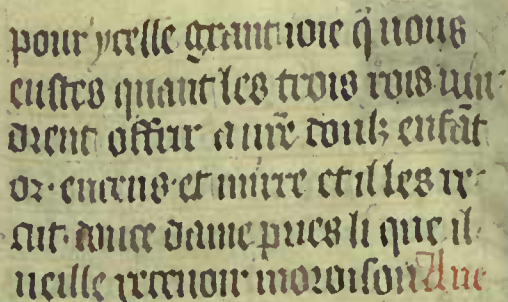 pour ycelle grant ioie q̄ uous
eustes quant les trois rois uin
drent offrir a ur̄e doulz enfāt
or · encens · et mirre et il les re
cut · douce dame pries li que il
ueille receuoir moroison Aue